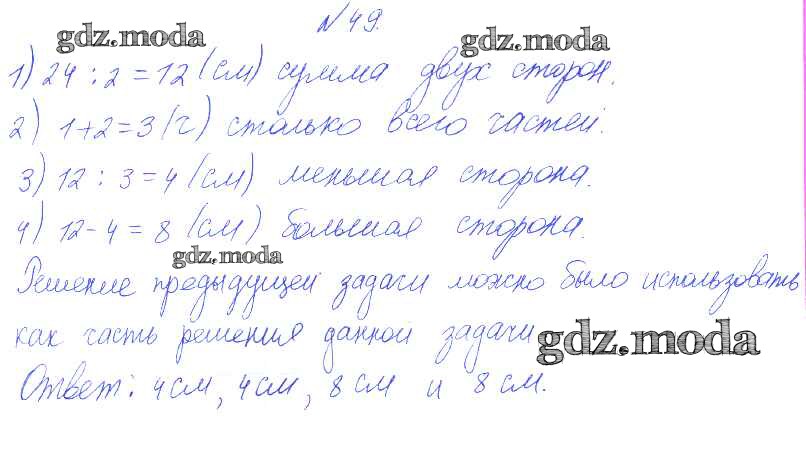 № 49.
gdz.moda gdz.moda
1) 24 : 2 = 12 (см) сумма двух сторон.
2) 1+2=3 (ч) столько всего частей.
3) 12 : 3 = 4 (см) меньшая сторона.
4) 12 - 4 = 8 (см) большая сторона.
gdz.moda
Решение предыдущей задачи можно было использовать
как часть решения данной задачи
gdz.moda
Ответ: 4 см, 4 см, 8 см и 8 см.